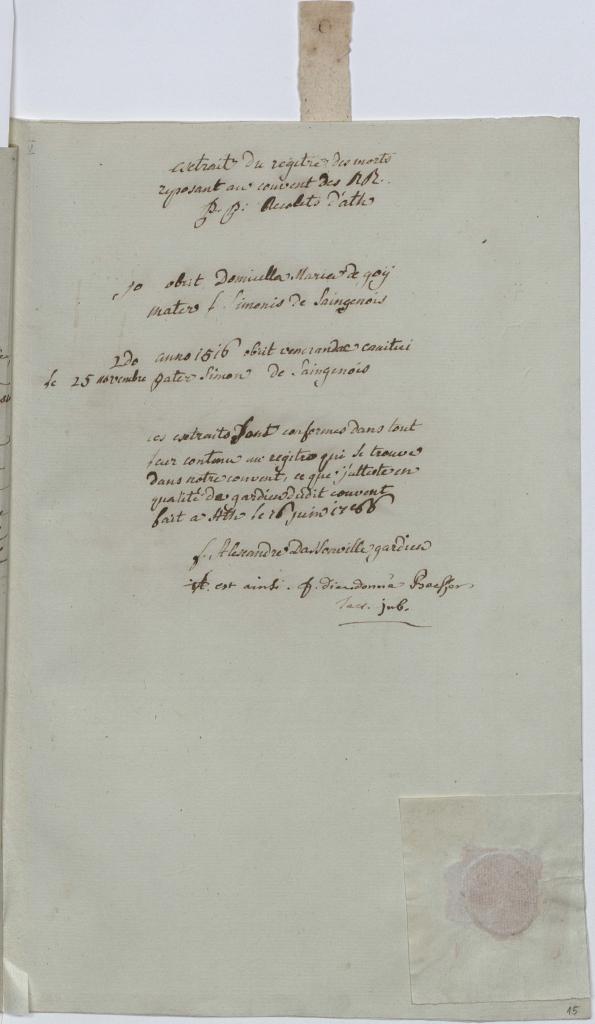 extrait du regitre des morts
reposant au couvent des RR.
p. p. Recolets d'ath
1o obiit Domicella Maria de goÿ
mater f. Simonis de Saingenois
2do anno 1516 obiit venerandae
le 25 novembre pater Simon de Saingenois
ces extraits sont conformes dans tout
leur contenu au regitre qui se trouve
dans notre couvent, ce que j'atteste en
qualité de gardien dudit couvent
fait a Ath le 16 juin
f. Alexandre gardien
est ainsi. f. dieudonné
jub.
15